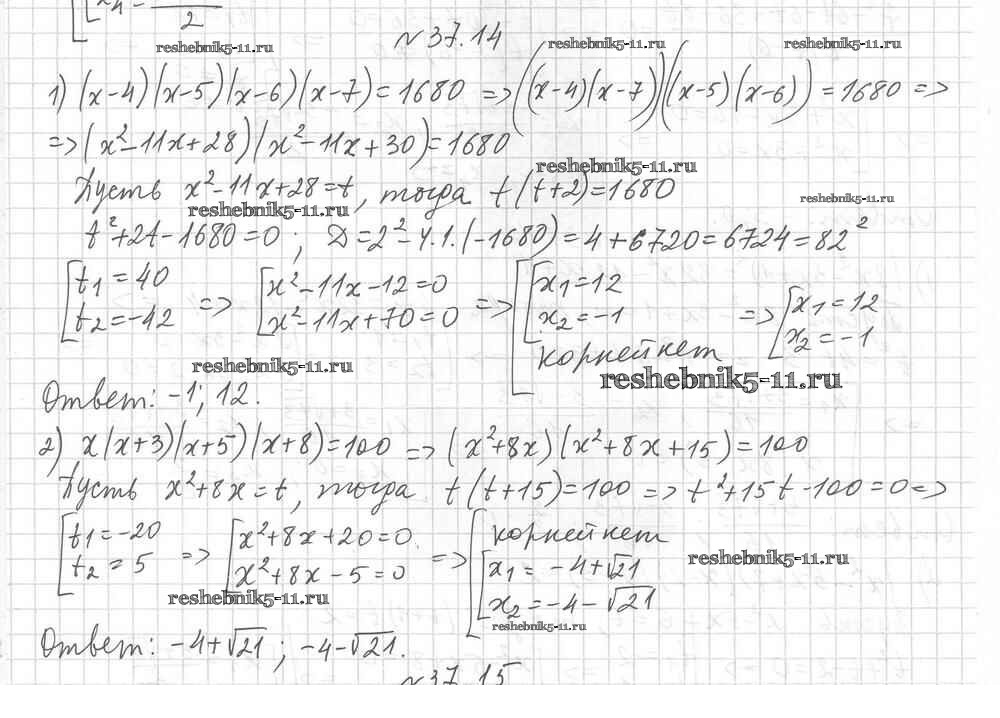 2
reshebnik5-11.ru № 37.14 reshebnik5-11.ru reshebnik5-11.ru
1) (x-4)(x-5)(x-6)(x-7)=1680 => ((x-4)(x-7))((x-5)(x-6))=1680 =>
=> (x²-11x+28)(x²-11x+30)=1680
reshebnik5-11.ru
Пусть x²-11x+28=t, тогда t(t+2)=1680
reshebnik5-11.ru reshebnik5-11.ru
t²+2t-1680=0; D=2²-4.1.(-1680)=4+6720=6724=82²
[t₁=40 [x²-11x-12=0 [[x₁=12 [x₁=12
t₂=-42 => x²-11x+70=0 => x₂=-1 => x₂=-1
корней нет
reshebnik5-11.ru reshebnik5-11.ru
Ответ: -1; 12.
2) x(x+3)(x+5)(x+8)=100 => (x²+8x)(x²+8x+15)=100
Пусть x²+8x=t, тогда t(t+15)=100 => t²+15t-100=0 =>
[t₁=-20 [x²+8x+20=0 [корней нет
t₂=5 => x²+8x-5=0 => [x₁=-4+√21
x₂=-4-√21
reshebnik5-11.ru reshebnik5-11.ru
reshebnik5-11.ru
Ответ: -4+√21; -4-√21.
№37.15